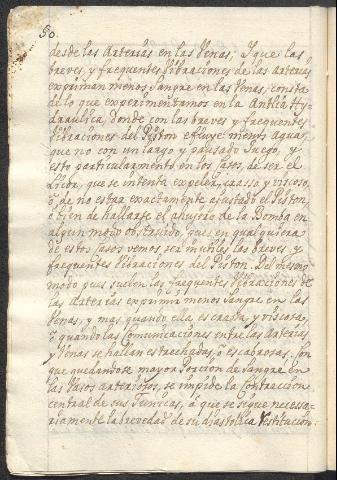 50.
desde las Arterias en las Venas; Y que las
breves, y frequentes Vibraciones de las arterias
expriman menos Sangre en las Venas, consta
de lo que experimentamos en la Antlia Hy-
draulica, donde con las breves y frequentes
Vibraciones del Piston efluye menos agua,
que no con un largo y pausado Juego, y
esto particularmente en los casos, de ser el
Licor, que se intenta expeler, crasso y viscoso,
ò de no estar exactamente ajustado el Piston,
o bien de hallarse el de la Bomba en
algun modo obstruido, pues en qualquiera
de estos casos vemos ser las breves, y
frequentes Vibraciones del Piston. Del mesmo
modo pues suelen las frequentes Vibraciones de
las Arterias exprimir menos Sangre en las
Venas, y mas quando ella es crassa, y viscosa,
ò quando las Comunicaciones entre las Arterias,
y Venas se hallan estrechadas, ò escabrosas. Con
que quedandose mayor Porcion de Sangre en
los Vasos arteriosos, se impide la Contraccion
central de sus Tunicas, à que se sigue necessa-
riamente la brevedad de su diastolica Restitucion.